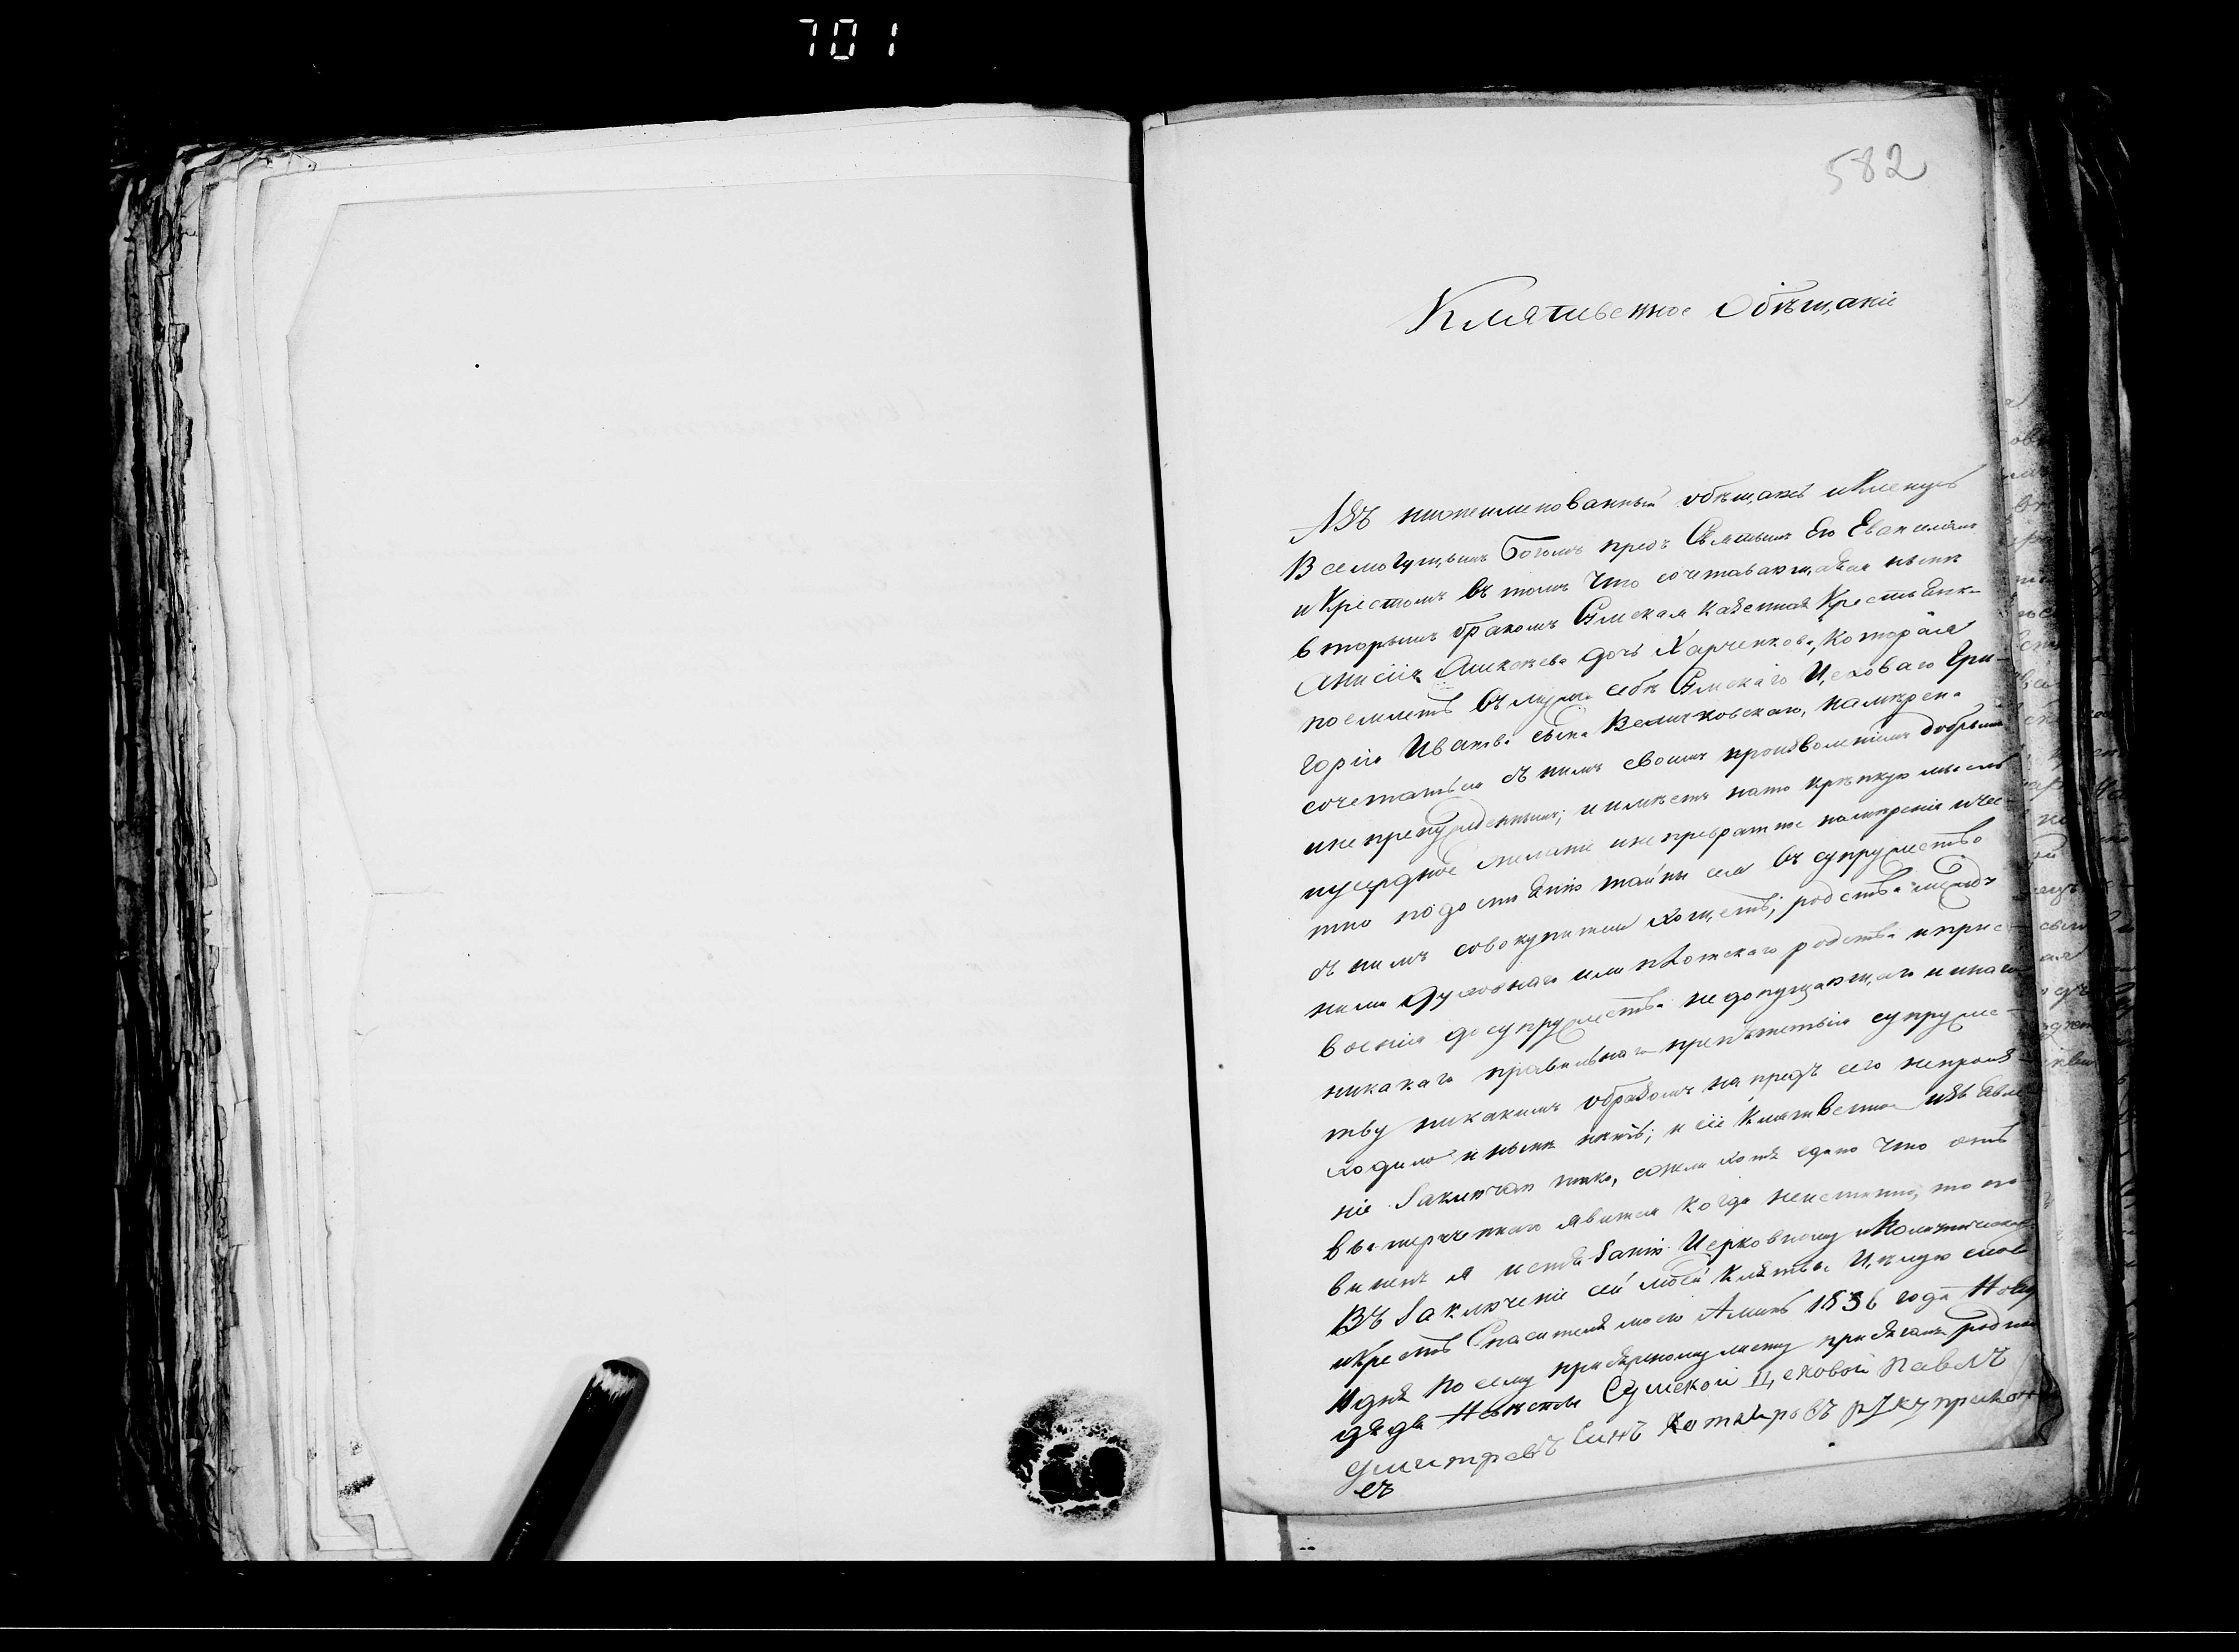 701
582
Клятвенное Обѣщаніе
Азъ нижеименованный обѣщаюсь и Кленусь
Всемогущимъ Богомъ предъ Святымъ Его Евангеліемъ
и Крестомъ въ томъ что сочетавающаяся нынѣ
вторымъ бракомъ Сумская казенная Крестьянка
Анисія Алексѣева дочь Харченкова, Которая
поемлетъ въ мужа себѣ Сумскаго Цеховаго Гри-
горія Иванова сына Величковскаго, намѣрена
сочетаться съ нимъ своимъ произволеніемъ добрымъ
и не принужденнымъ; и имѣетъ на то крѣпкую мысль
и усердное желаніе и не превратное намѣреніе и чес-
тно по достоянію тайны сея въ супружество
съ нимъ совокупится хощетъ; родства между
ними духовнаго или плотскаго родства и прис-
военія до супружества не допущающаго и инаго
никакаго правильнаго препятствія супружес-
тву никакимъ образомъ напредъ сего непроиз-
ходило и нынѣ нѣтъ; и сіе Клятвенное изъявле-
ніе Заключаю тако, ежели хотя едино что отъ
вышереченнаго явится когда неистинно, то по-
виненъ я истязанію Церковному и Политическому
Въ Заключеніе сей моей Клятвы Цѣлую слова
и Крестъ Спасителя моего Аминь 1836 года
дня По сему присяжному листу присягалъ родной
дядя Невѣсты Сумской Цеховой Павелъ
Дмитревъ синъ руку приложи
лъ